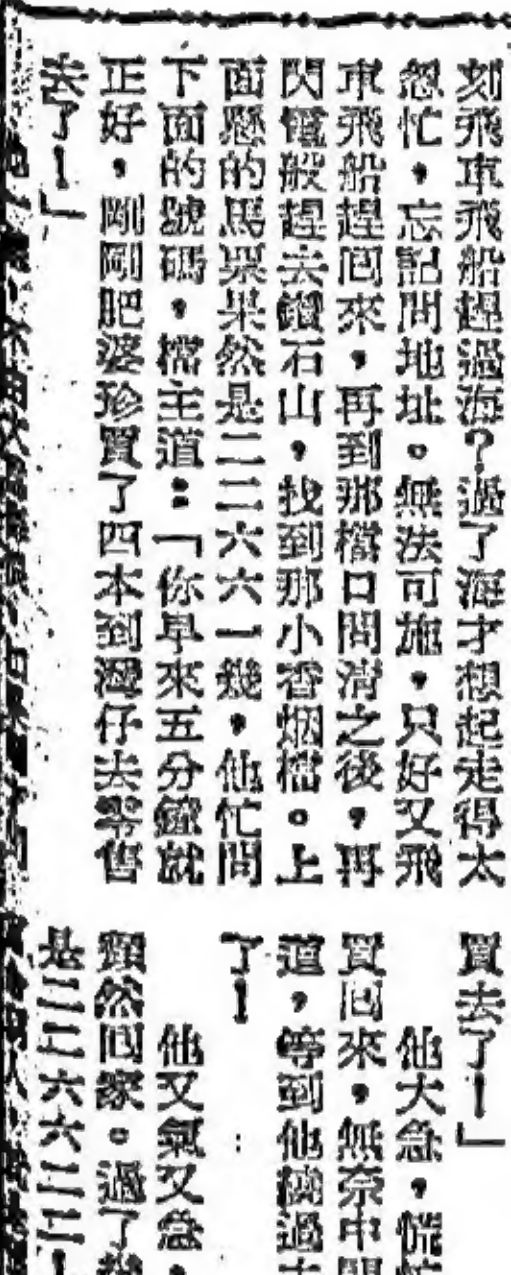 刻飛車飛船趕過海？過了海才想起走得太
忽忙，忘記問地址。無法可施，只好又飛
車飛船趕回來，再到那檔口問清之後，再
閃電般趕去鑽石山，找到那小香烟檔。上
面懸的馬票果然是二二六六一幾，他忙問
下面的號碼，檔主道：「你早來五分鐘就
正好，剛剛肥婆珍買了四本到灣仔去零售
去了！」
買去了！」
他大急，慌忙
買回來，無奈中間
道，等到他
了！
他又氣又急，
頹然回家。過了幾
是二二六六二二！